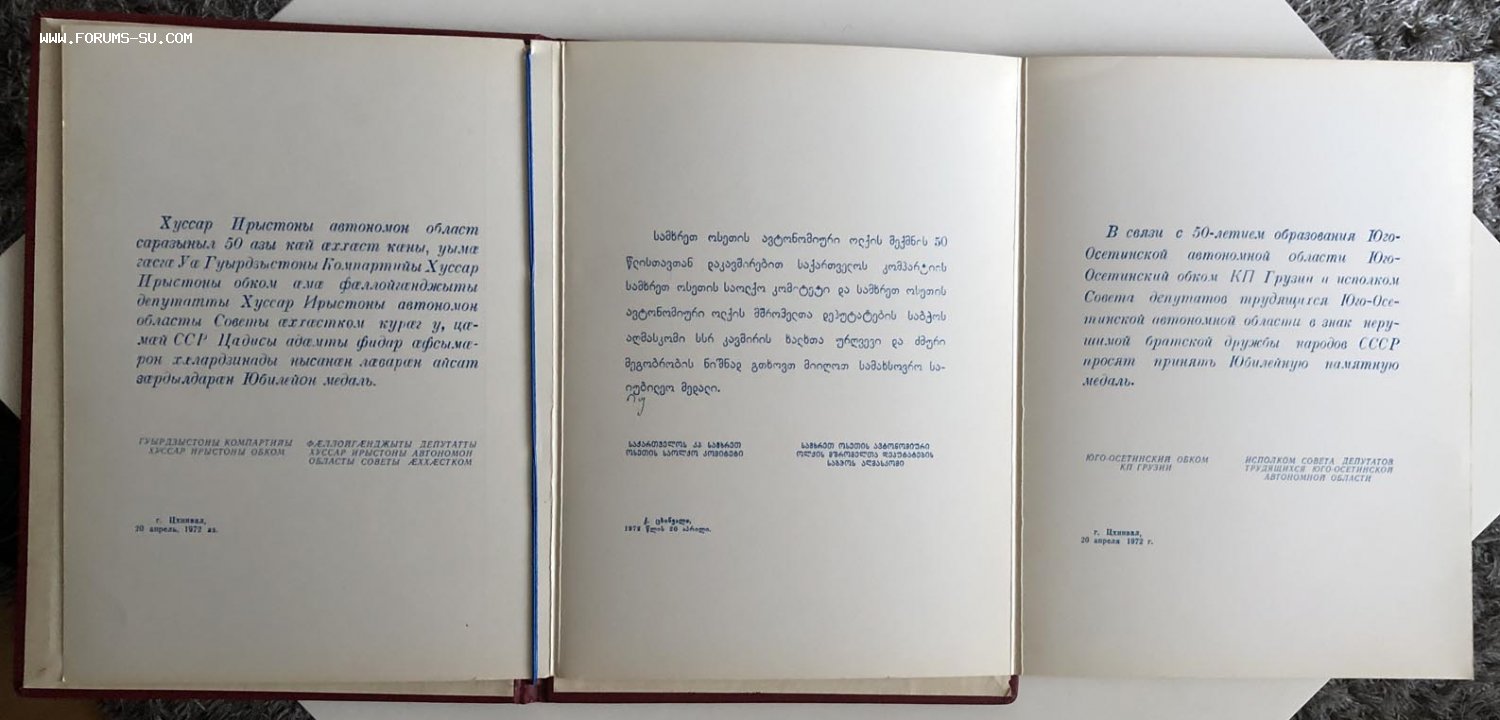 www.forums-su.com
Хуссар Ирыстоны автономон област
саразыныл 50 азы кæй æххæст кæны, уымæ
гæсгæ Уæ Гуырдзыстоны Компартийы Хуссар
Ирыстоны обком æмæ фæллойгæнджыты
депутатты Хуссар Ирыстоны автономон
областы Советы æххæстком курæг у, цæ-
мæй ССР Цæдисы адæмты фидар æфсымæ-
рон хæлардзинады нысанæн лæварæн айсат
зæрдылдаран Юбилейон медаль.
ГУЫРДЗЫСТОНЫ КОМПАРТИЙЫ
ХУССАР ИРЫСТОНЫ ОБКОМ
ФÆЛЛОЙГÆНДЖЫТЫ ДЕПУТАТТЫ
ХУССАР ИРЫСТОНЫ АВТОНОМОН
ОБЛАСТЫ СОВЕТЫ ÆХХÆСТКОМ
г. Цхинвал,
20 апрель, 1972 аз.
სამხრეთ ოსეთის ავტონომიური ოლქის შექმნის 50
წლისთავთან დაკავშირებით საქართველოს კომპარტიის
სამხრეთ ოსეთის საოლქო კომიტეტი და სამხრეთ ოსეთის
ავტონომიური ოლქის მშრომელთა დეპუტატების საბჭოს
აღმასკომი სსრ კავშირის ხალხთა ურღვევი და ძმური
მეგობრობის ნიშნად გთხოვთ მიიღოთ სამახსოვრო სა-
იუბილეო მედალი.
საქართველოს კპ სამხრეთ
ოსეთის საოლქო კომიტეტი
სამხრეთ ოსეთის ავტონომიური
ოლქის მშრომელთა დეპუტატების
საბჭოს აღმასკომი
ქ. ცხინვალი,
1972 წლის 20 აპრილი.
В связи с 50-летием образования Юго-
Осетинской автономной области Юго-
Осетинский обком КП Грузии и исполком
Совета депутатов трудящихся Юго-Осе-
тинской автономной области в знак неру-
шимой братской дружбы народов СССР
просят принять Юбилейную памятную
медаль.
ЮГО-ОСЕТИНСКИЙ ОБКОМ
КП ГРУЗИИ
ИСПОЛКОМ СОВЕТА ДЕПУТАТОВ
ТРУДЯЩИХСЯ ЮГО-ОСЕТИНСКОЙ
АВТОНОМНОЙ ОБЛАСТИ
г. Цхинвал,
20 апреля 1972 г.